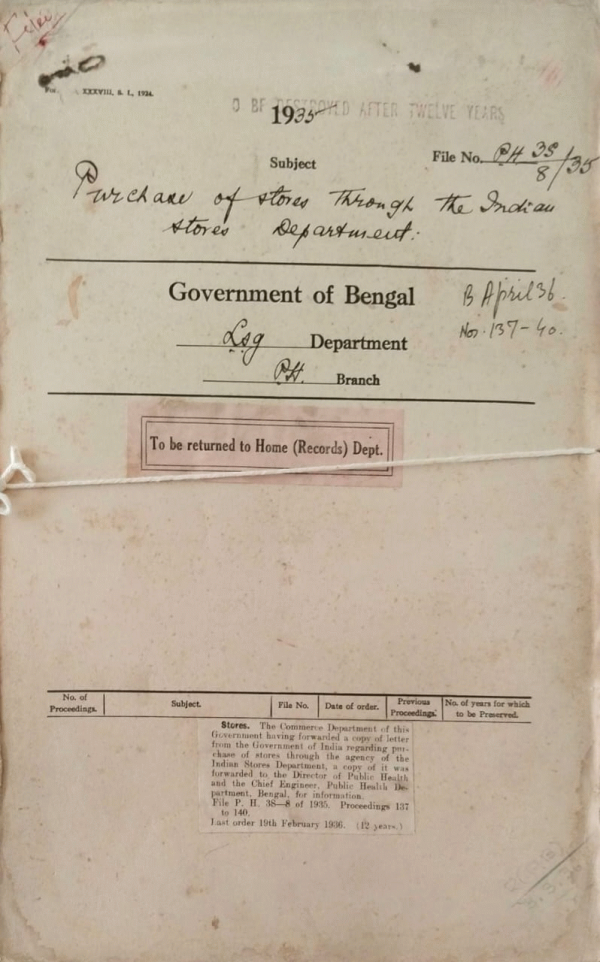 XXXVIII, S. I., 1934.
O BE DESTROYED AFTER TWELVE YEARS
1935
File No. PH 3S/8/35
Subject
Purchase of stores through the Indian
stores Department.
Government of Bengal
B April 36.
Nos. 137-40.
Lsg Department
PH. Branch
To be returned to Home (Records) Dept.
No. of Proceedings. Subject. File No. Date of order. Previous Proceedings. No. of years for which to be Preserved.
Stores. The Commerce Department of this
Government having forwarded a copy of letter
from the Government of India regarding pur-
chase of stores through the agency of the
Indian Stores Department, a copy of it was
forwarded to the Director of Public Health
and the Chief Engineer, Public Health De-
partment, Bengal, for information.
File P. H. 3S—8 of 1935. Proceedings 137
to 140.
Last order 19th February 1936. (12 years.)